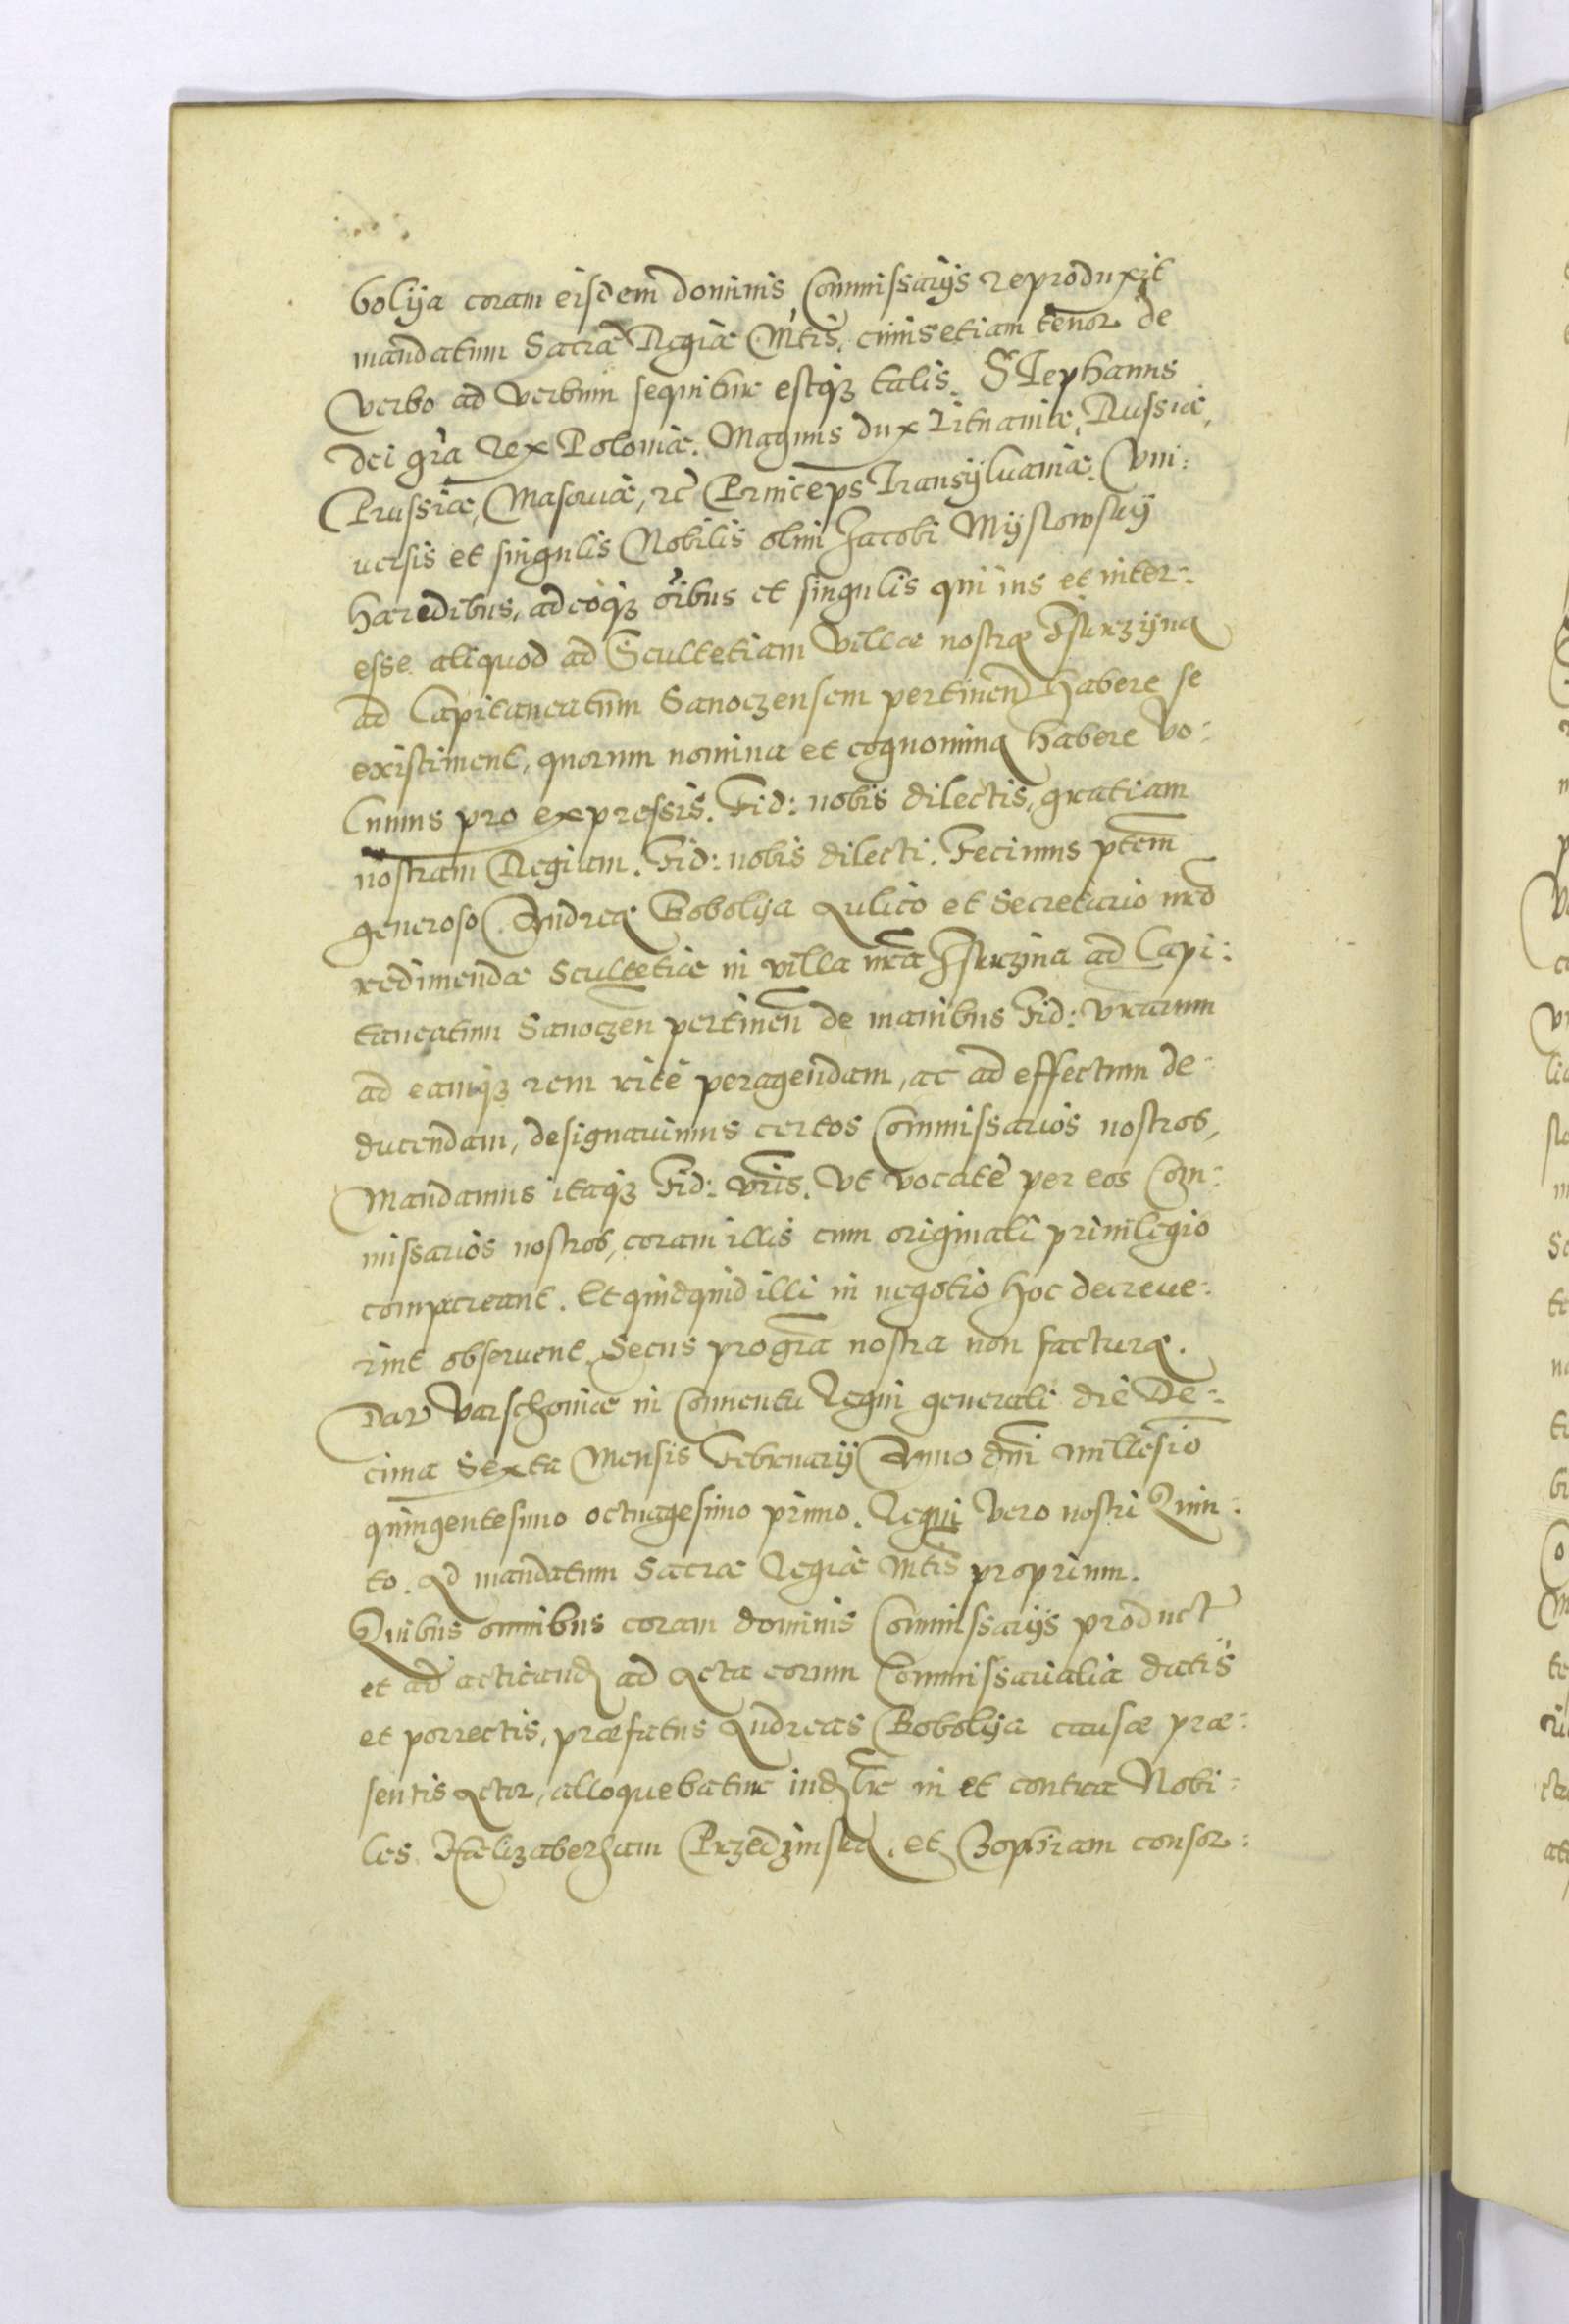 bolÿa coram eisdem dominis Commissarÿs reproduxit
mandatum Sacræ Regiæ Mtis, cuius etiam tenor de
Verbo ad verbum sequitur estq3 talis. Stephanus
Dei gra Rex Poloniæ. Magnus dux Lituaniæ, Russiæ,
Prussiæ, Masouiæ, rc Princeps Transÿluaniæ. Vni:
uersis et singulis Nobilis olim Jacobi Mÿslowskÿ
hæredibus, adeoq3 oibus et singulis qui ius et inter:
esse aliquod ad Scultetiam Villæ nostræ Iskrzÿna
ad Capitaneatum Sanoczensem pertinen habere se
existiment, quorum nomina et cognomina habere vo:
lumus pro expressis. Fid: nobis dilectis, gratiam
nostram Regiam. Fid: nobis dilecti. Fecimus ptem
generoso Andreæ Bobolÿa Aulico et Secretario nro
redimendæ Scultetiæ in villa nra Iskrzina ad Capi:
taneatum Sanoczen pertinen de manibus Fid: vrarum
ad eamq3 rem ritè peragendam, ac ad effectum de:
ducendam, designauimus certos Commissarios nostros,
Mandamus itaq3 Fid: vris. Vt vocatè per eos Com:
missarios nostros, coram illis cum originali priuilegio
compareant. Et quidquid illi in negotio hoc decreue:
rint obseruent. Secus pro gra nostra non facturæ.
Dat Varschouiæ in Conuentu Regni generali die De:
cima Sexta Mensis Februarÿ Anno dni millesio
quingentesimo octuagesimo primo. Regni vero nostri Quin:
to. Ad mandatum Sacræ Regiæ Mtis proprium.
Quibus omnibus coram dominis Commissarÿs product
et ad acticand ad Acta eorum Commissarialia datis
et porrectis, præfatus Andreas Bobolÿa causæ præ:
sentis Actor, alloquebatur in et contra Nobi:
les Hælizabetham Przedzinska, et Zophiam consor: